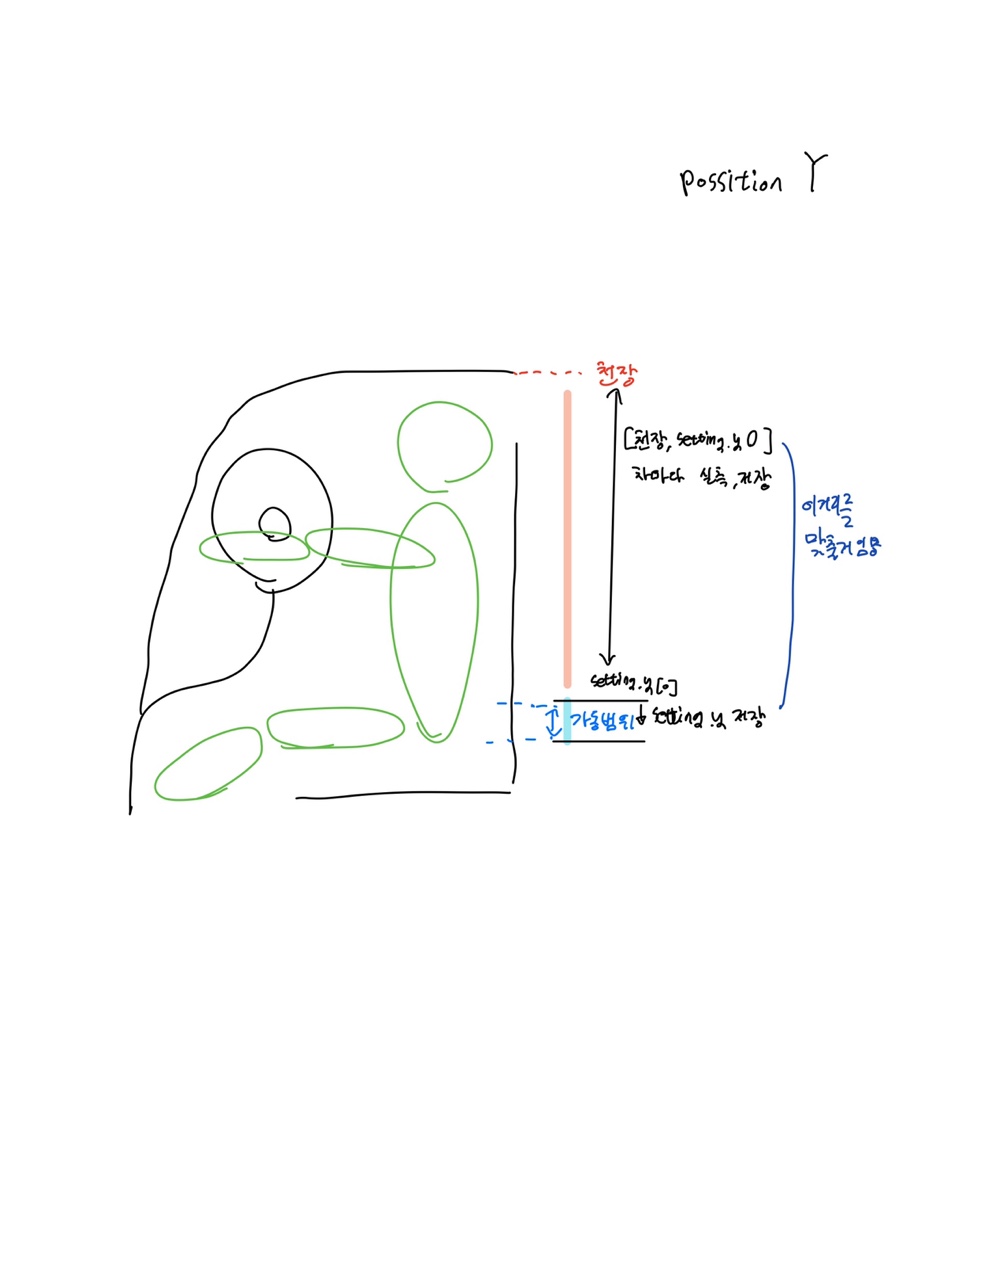 possition Y
천장
[천장, setting.y 0]
차마다 실측, 저장
이거리를
맞출거임
setting.y[0]
가동범위
setting.y 저장